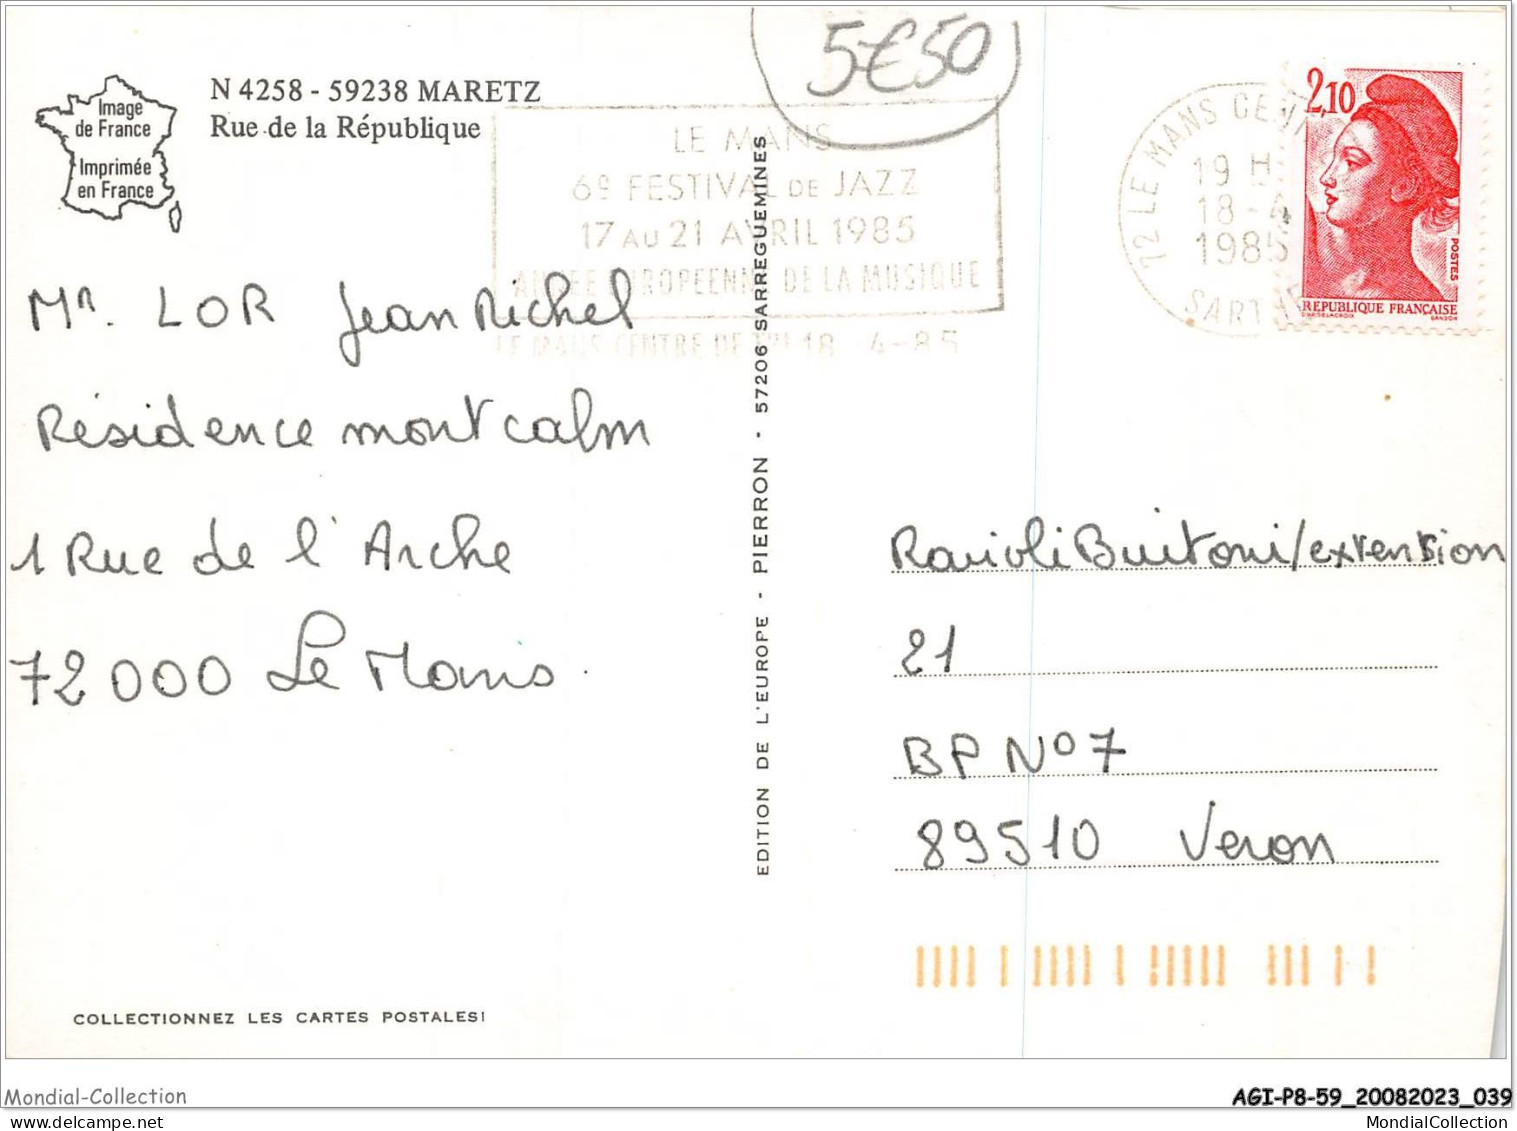 5€50
Image
de France
Imprimée
en France
N 4258 - 59238 MARETZ
Rue de la République
LE MANS
6e FESTIVAL DE JAZZ
17 AU 21 AVRIL 1985
ANNEE EUROPEENNE DE LA MUSIQUE
LE MANS CENTRE DE TRI 18 4-85
72 LE MANS CENT
19 H
18-4
1985
SART
2,10
POSTES
REPUBLIQUE FRANÇAISE
D'AP. DELACROIX GANDON
Mr. LOR Jean Michel
Résidence montcalm
1 Rue de l'Arche
72000 Le Mans.
EDITION DE L'EUROPE - PIERRON - 57206 SARREGUEMINES
Ravioli Buitoni/extension
21
BP No 7
89510 Veron
COLLECTIONNEZ LES CARTES POSTALES!
Mondial-Collection
AGI-P8-59_20082023_039
MondialCollection